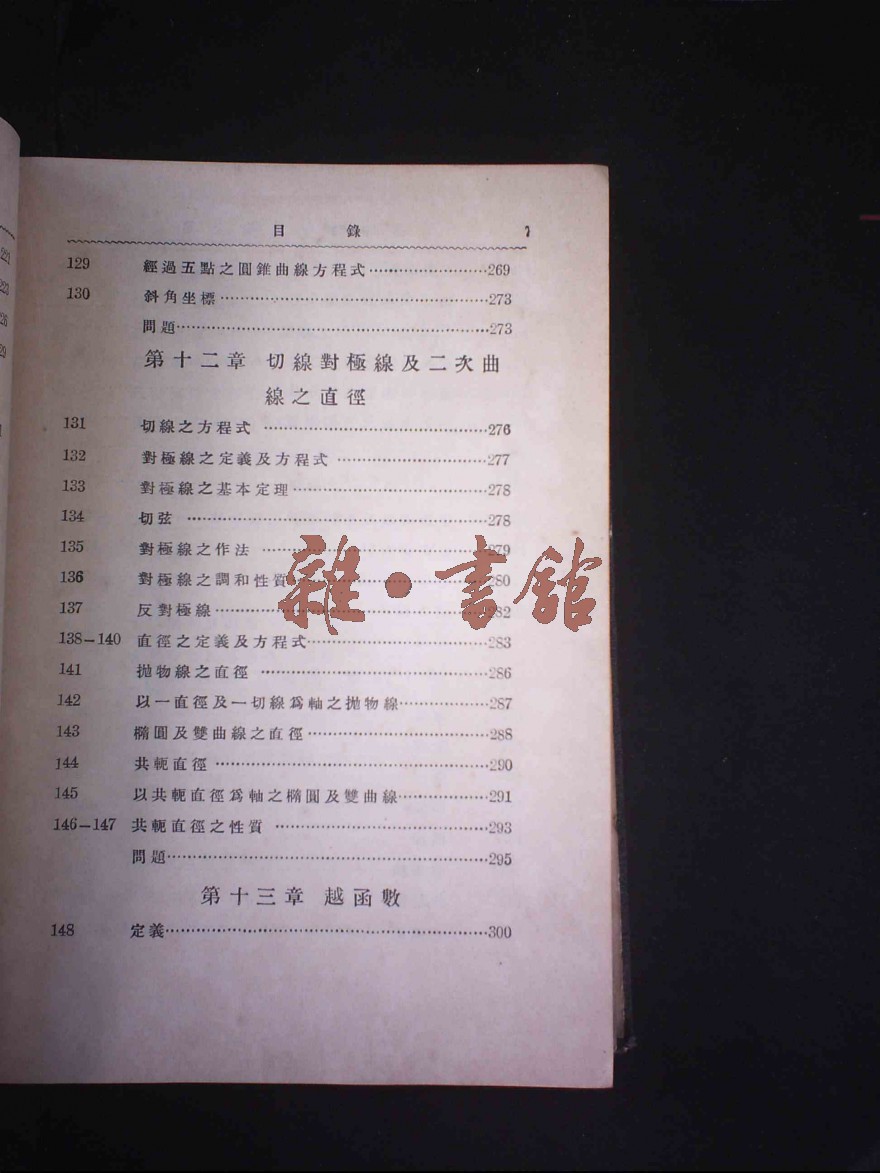 目 錄 7
129 經過五點之圓錐曲線方程式…………………269
130 斜角坐標…………………273
問題…………………273
第十二章 切線對極線及二次曲
線之直徑
131 切線之方程式…………………276
132 對極線之定義及方程式…………………277
133 對極線之基本定理…………………278
134 切弦…………………278
135 對極線之作法…………………279
136 對極線之調和性質…………………280
137 反對極線…………………282
138—140 直徑之定義及方程式…………………283
141 拋物線之直徑…………………286
142 以一直徑及一切線爲軸之拋物線…………………287
143 橢圓及雙曲線之直徑…………………288
144 共軛直徑…………………290
145 以共軛直徑爲軸之橢圓及雙曲線…………………291
146—147 共軛直徑之性質…………………293
問題…………………295
第十三章 越函數
148 定義…………………300
雜·書館
221
223
226
229